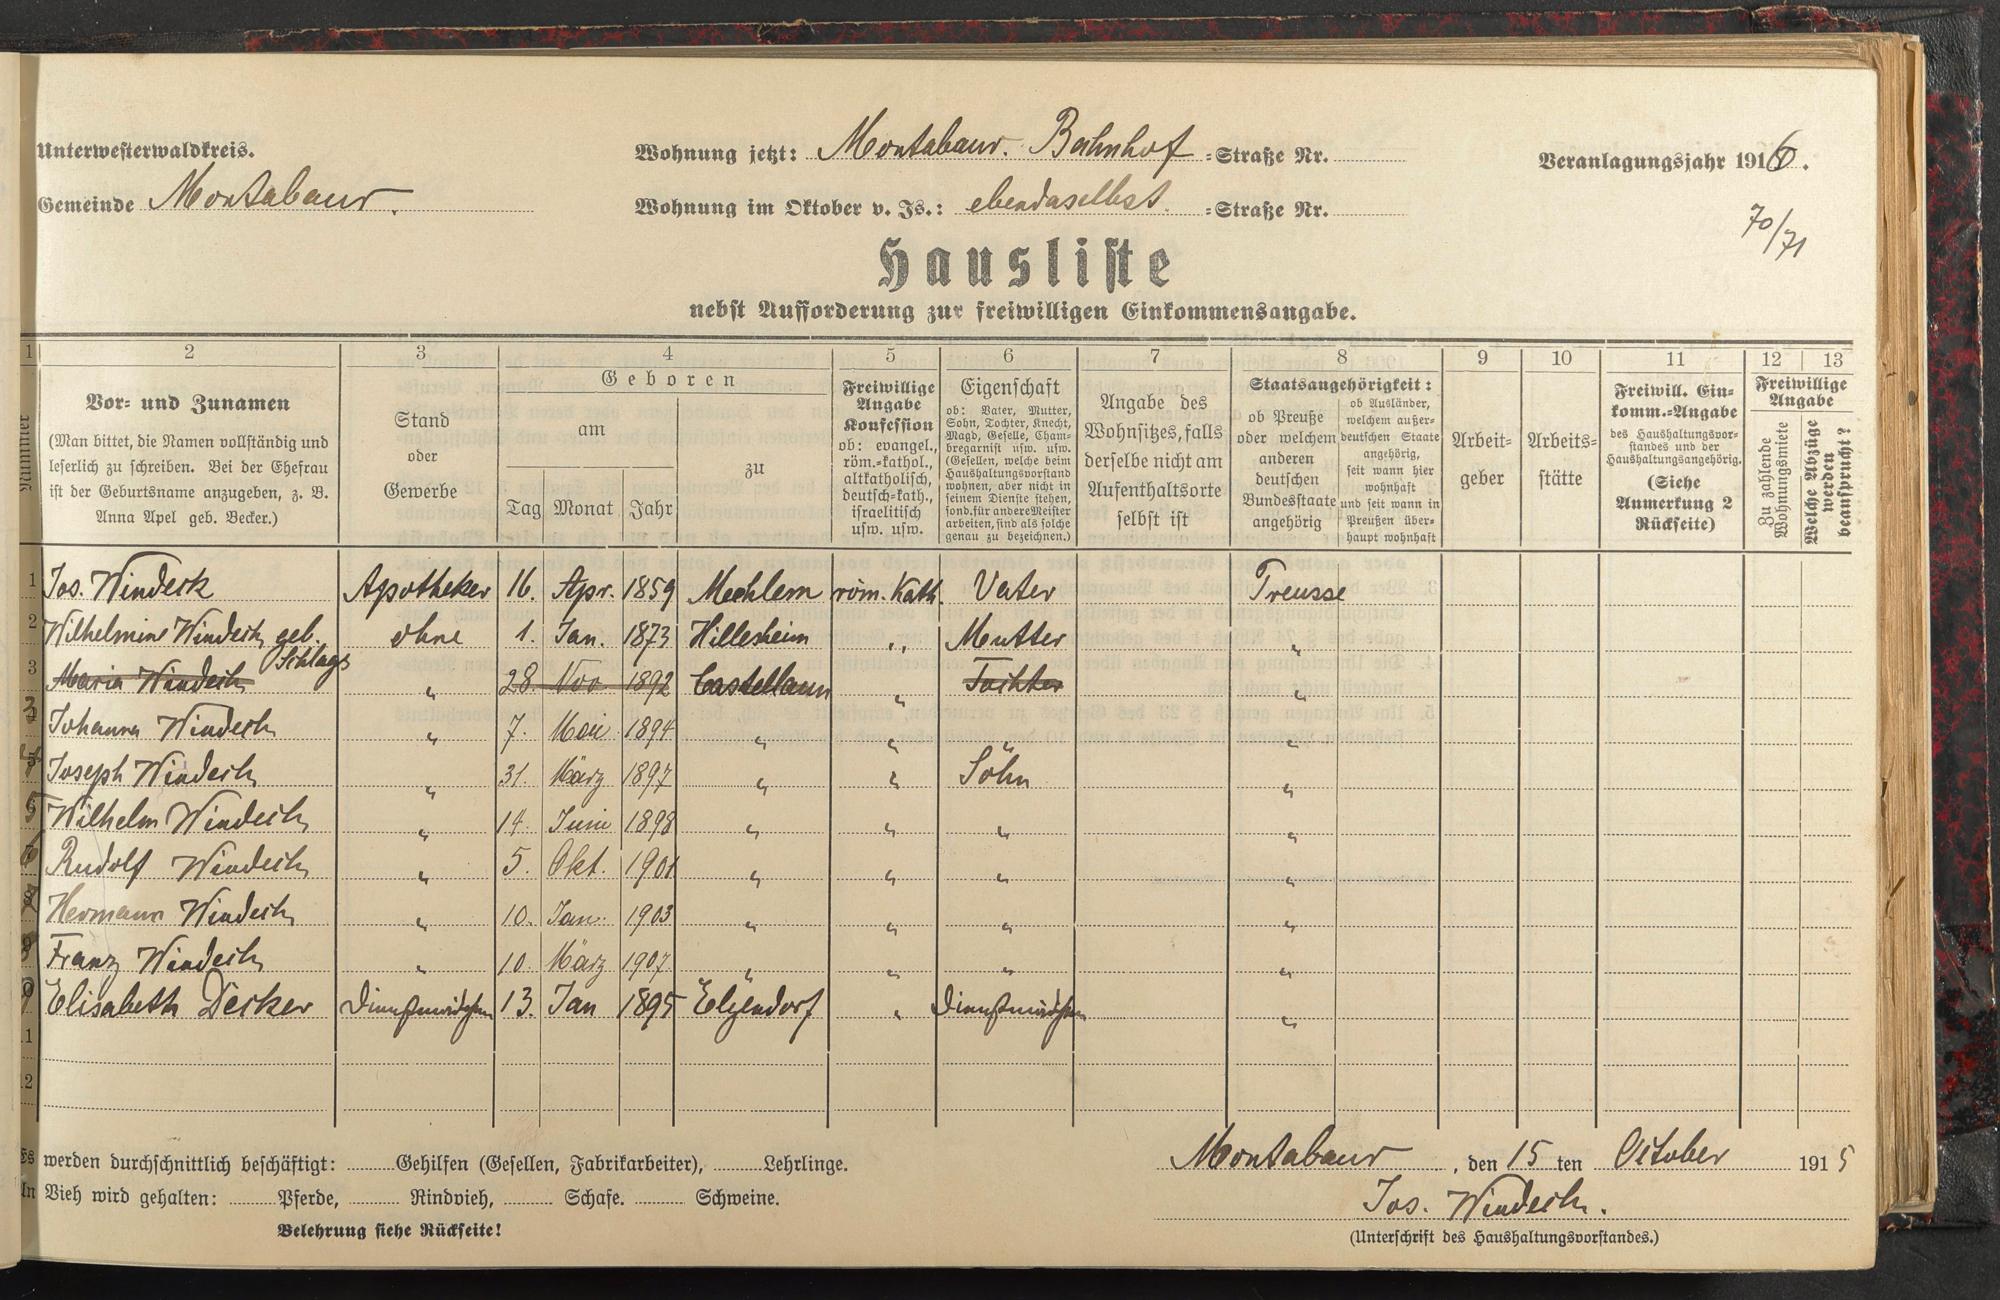 Unterwesterwaldkreis.
Gemeinde Montabaur.
Wohnung jetzt: Montabaur. Bahnhof =Straße Nr.
Wohnung im Oktober v. Js.: ebendaselbst =Straße Nr.
Veranlagungsjahr 1916.
70/71
Hausliste
nebst Aufforderung zur freiwilligen Einkommensangabe.
1 2 3 4 5 6 7 8 9 10 11 12 13
Nummer
Vor- und Zunamen
(Man bittet, die Namen vollständig und
leserlich zu schreiben. Bei der Ehefrau
ist der Geburtsname anzugeben, z. B.
Anna Apel geb. Becker.)
Stand
oder
Gewerbe
Geboren
am
Tag Monat Jahr
zu
Freiwillige
Angabe
Konfession
ob: evangel.,
röm.=kathol.,
altkatholisch,
deutsch=kath.,
israelitisch
usw. usw.
Eigenschaft
ob: Vater, Mutter,
Sohn, Tochter, Knecht,
Magd, Geselle, Cham-
bregarnist usw. usw.
(Gesellen, welche beim
Haushaltungsvorstand
wohnen, aber nicht in
seinem Dienste stehen,
sond. für andere Meister
arbeiten, sind als solche
genau zu bezeichnen.)
Angabe des
Wohnsitzes, falls
derselbe nicht am
Aufenthaltsorte
selbst ist
Staatsangehörigkeit:
ob Preuße
oder welchem
anderen
deutschen
Bundesstaate
angehörig
ob Ausländer,
welchem außer-
deutschen Staate
angehörig,
seit wann hier
wohnhaft
und seit wann in
Preußen über-
haupt wohnhaft
Arbeit-
geber
Arbeits-
stätte
Freiwill. Ein-
komm.=Angabe
des Haushaltungsvor-
standes und der
Haushaltungsangehörig.
(Siehe
Anmerkung 2
Rückseite)
Freiwillige
Angabe
Zu zahlende
Wohnungsmiete
Welche Abzüge
werden
beansprucht?
1 Jos. Windeck Apotheker 16. Apr. 1859 Mechlem röm. Kath. Vater Preusse
2 Wilhelmine Windeck geb. Schlags ohne 1. Jan. 1873 Hillesheim " Mutter "
3 Maria Windeck " 28 Nov 1892 Castellaun " Tochter "
3 Johanna Windeck " 7. Mai 1894 " " " "
4 Joseph Windeck " 31. März 1897 " " Sohn "
5 Wilhelm Windeck " 14. Juni 1898 " " " "
6 Rudolf Windeck " 5. Okt. 1901 " " " "
Hermann Windeck " 10. Jan. 1903 " " " "
Franz Windeck " 10. März 1907 " " " "
Elisabeth Decker Dienstmädchen 13. Jan 1895 Elgendorf " Dienstmädchen "
11
12
Es werden durchschnittlich beschäftigt: Gehilfen (Gesellen, Fabrikarbeiter), Lehrlinge.
An Vieh wird gehalten: Pferde, Rindvieh, Schafe. Schweine.
Belehrung siehe Rückseite!
Montabaur, den 15 ten October 1915
Jos. Windeck.
(Unterschrift des Haushaltungsvorstandes.)